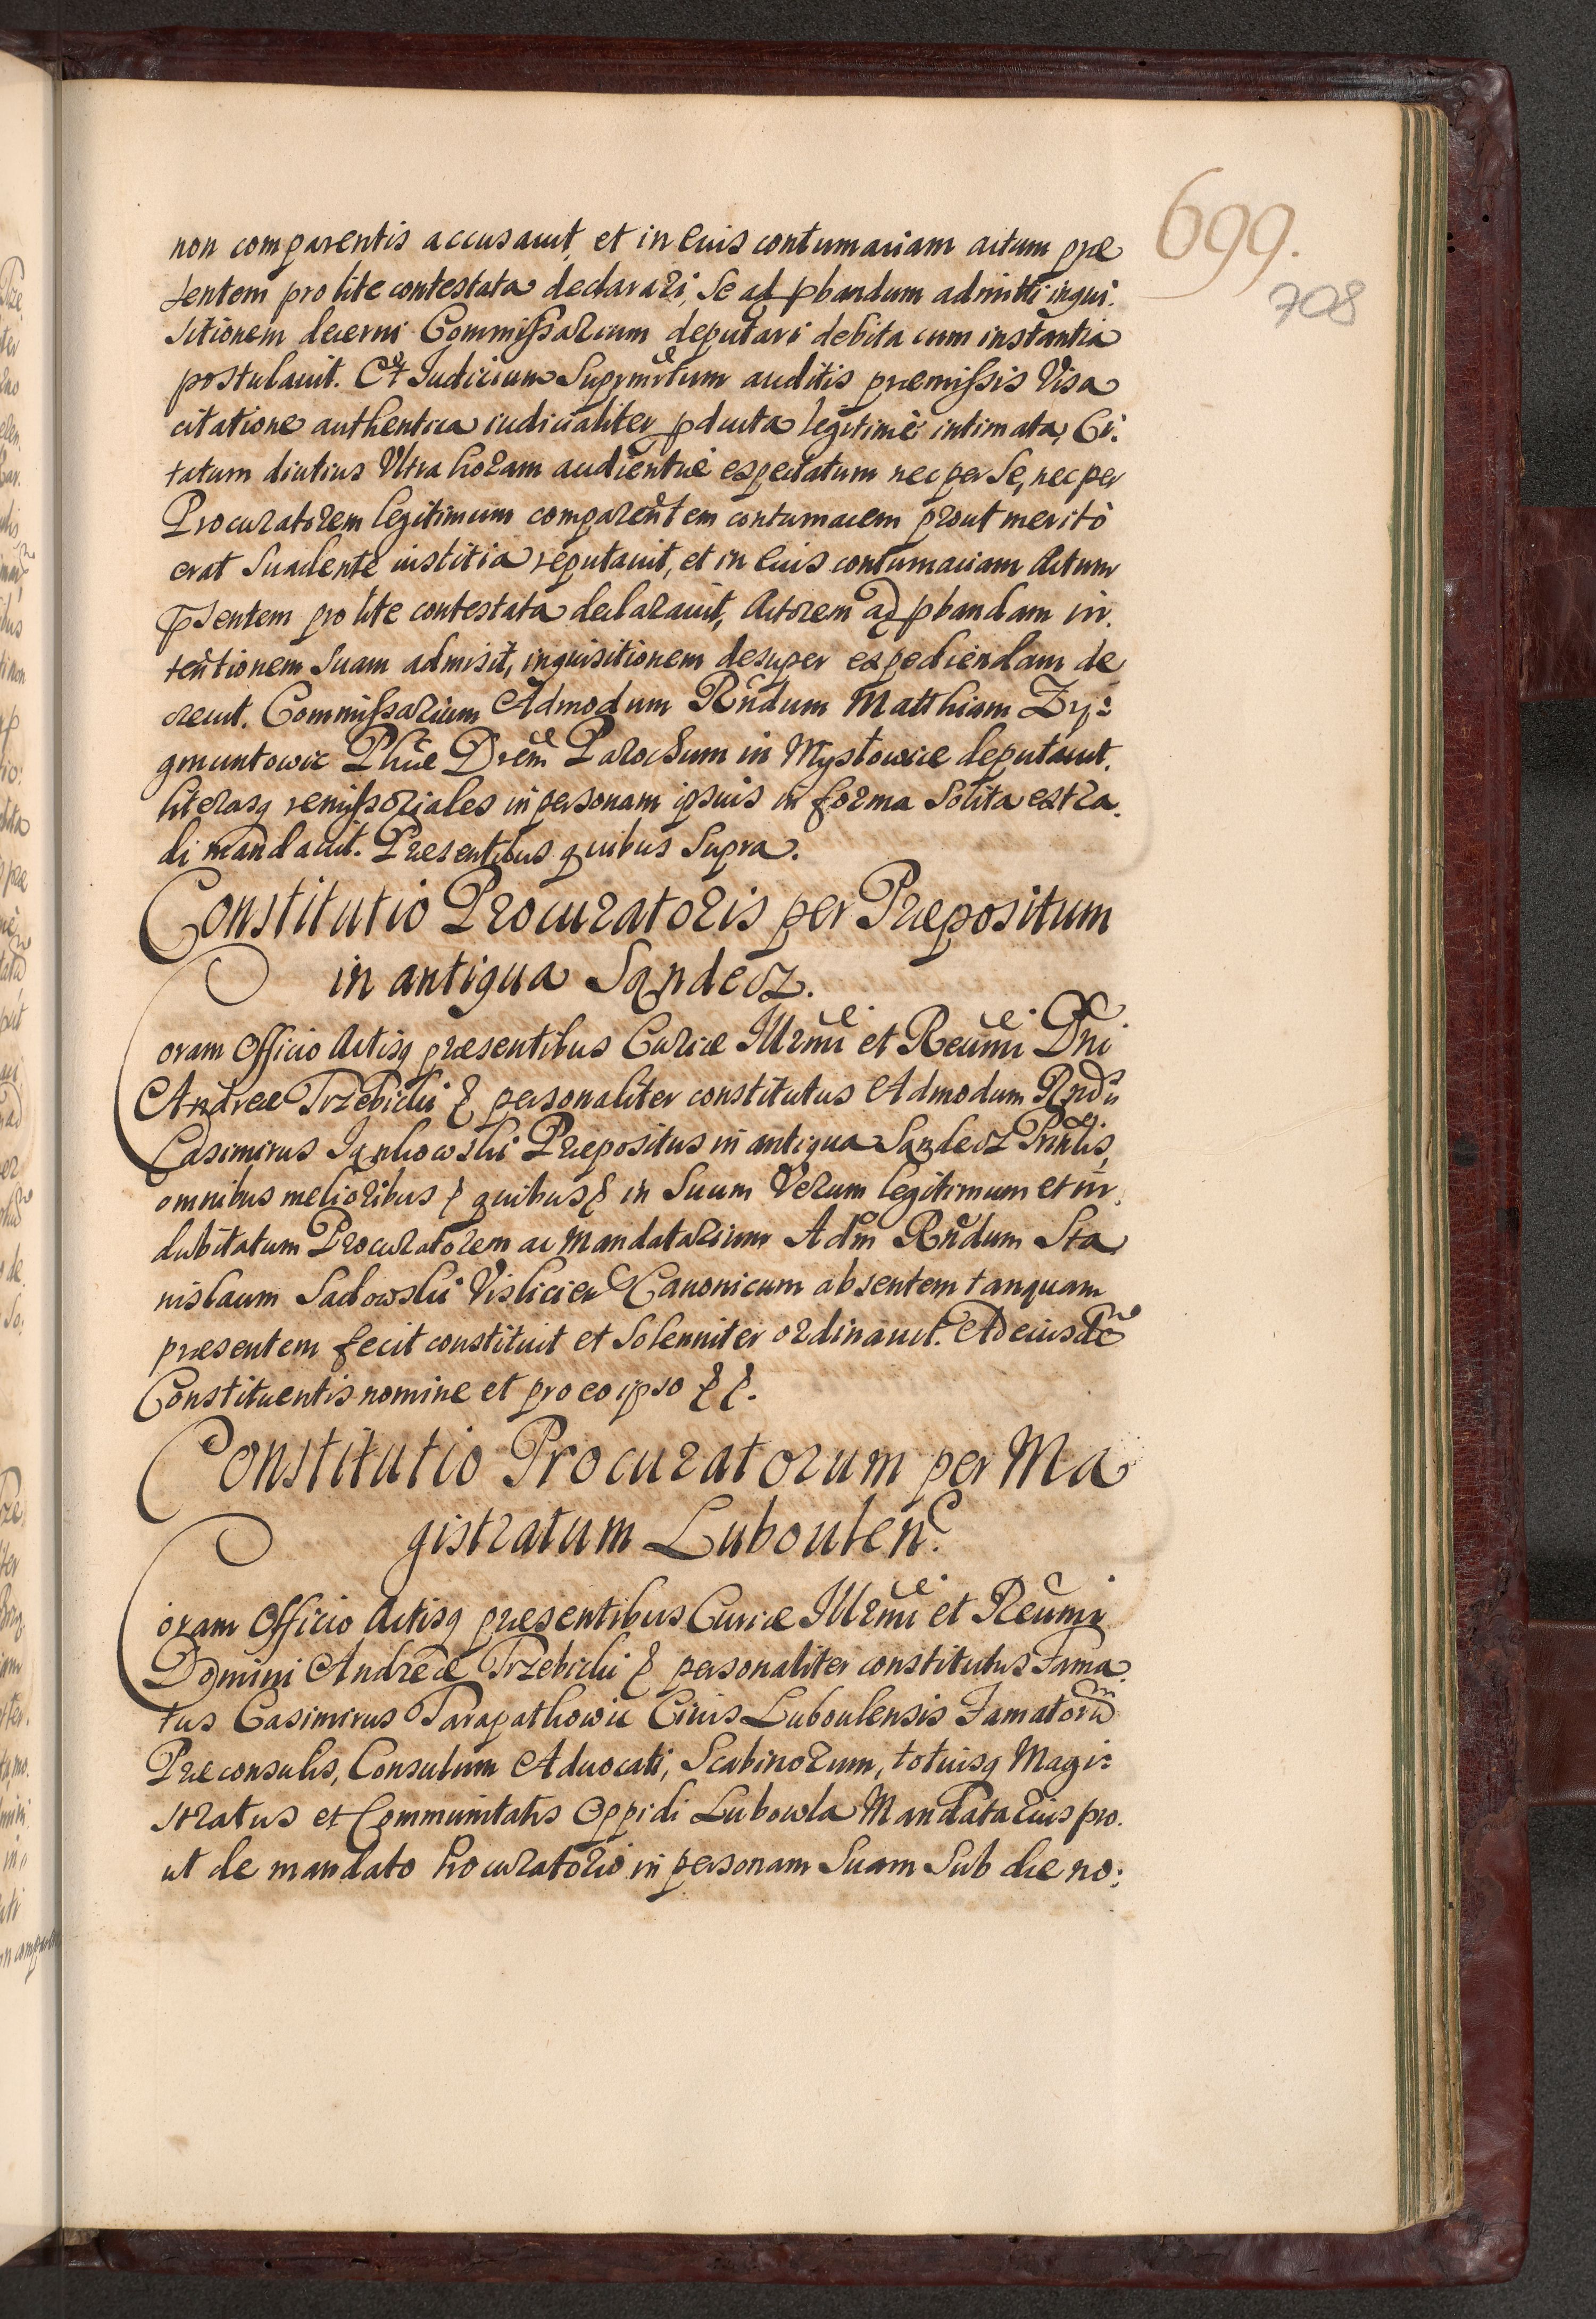 699.
708
non comparentis accusauit, et in Eius contumaciam actum præ
sentem pro lite contestata declarari, Se ad pbandum admitti inqui:
sitionem decerni Commissarium deputari debita cum instantia
postulauit. Et Iudicium Suprmtum auditis præmissis Visa
citatione authentica iudicialiter pducta legitimè intimata, Ci:
tatum diutius Vltra horam audientiæ expectatum nec per Se, nec per
Procuratorem legitimum comparentem contumacem prout meritò
erat Suadente iustitia reputauit, et in Eius contumaciam Actum
psentem pro lite contestata declarauit, Actorem ad pbandam in:
tentionem Suam admisit, inquisitionem desuper expediendam de
creuit. Commissarium Admodum Rndum Matthiam Zy:
gmuntowic Phiæ Drem Parochum in Mystowice deputauit.
literasq remissoriales in personam ipsius in forma Solita extra
di mandauit. Præsentibus quibus Supra.
Constitutio Procuratoris per Præpositum
in antiqua Sandecz.
Coram Officio Actisq præsentibus Curiæ Illrmi et Reumi Dni
Andreæ Trzebicki & personaliter constitutus Admodum Rndus
Casimirus Iankowski Præpositus in antiqua Sandecz Prinlis,
omnibus melioribus & quibus & in Suum Verum legitimum et in
dubitatum Procuratorem ac Mandatarium Adm Rndum Sta
nislaum Sadowski Vislicien Canonicum absentem tanquam
præsentem fecit constituit et Solenniter ordinauit. Ad eiusdem
Constituentis nomine et pro eo ipso & &.
Constitutio Procuratorum per Ma
gistratum Luboulen.
Coram Officio Actisq præsentibus Curiæ Illrmi et Reumi
Domini Andreæ Trzebicki & personaliter constitutus Fama
tus Casimirus Parapathowic Ciuis Luboulensis Famatoru
Præconsulis, Consulum Aduocati, Scabinorum, totiusq Magi:
stratus et Communitatis Oppidi Lubowla Mandatarius pro
ut de mandato Procuratorio in personam Suam Sub die no: